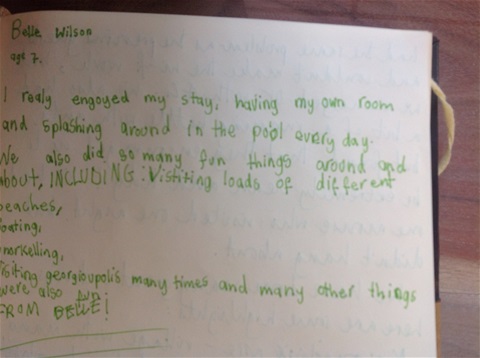 Belle Wilson
age 7.
I realy engoyed my stay, having my own room
and splashing around in the pool every day.
We also did so many fun things around and
about, INCLUDING: Vistiting loads of different
beaches,
boating,
snorkelling,
visiting georgioupolis many times and many other things
were also fun
FROM BELLE!